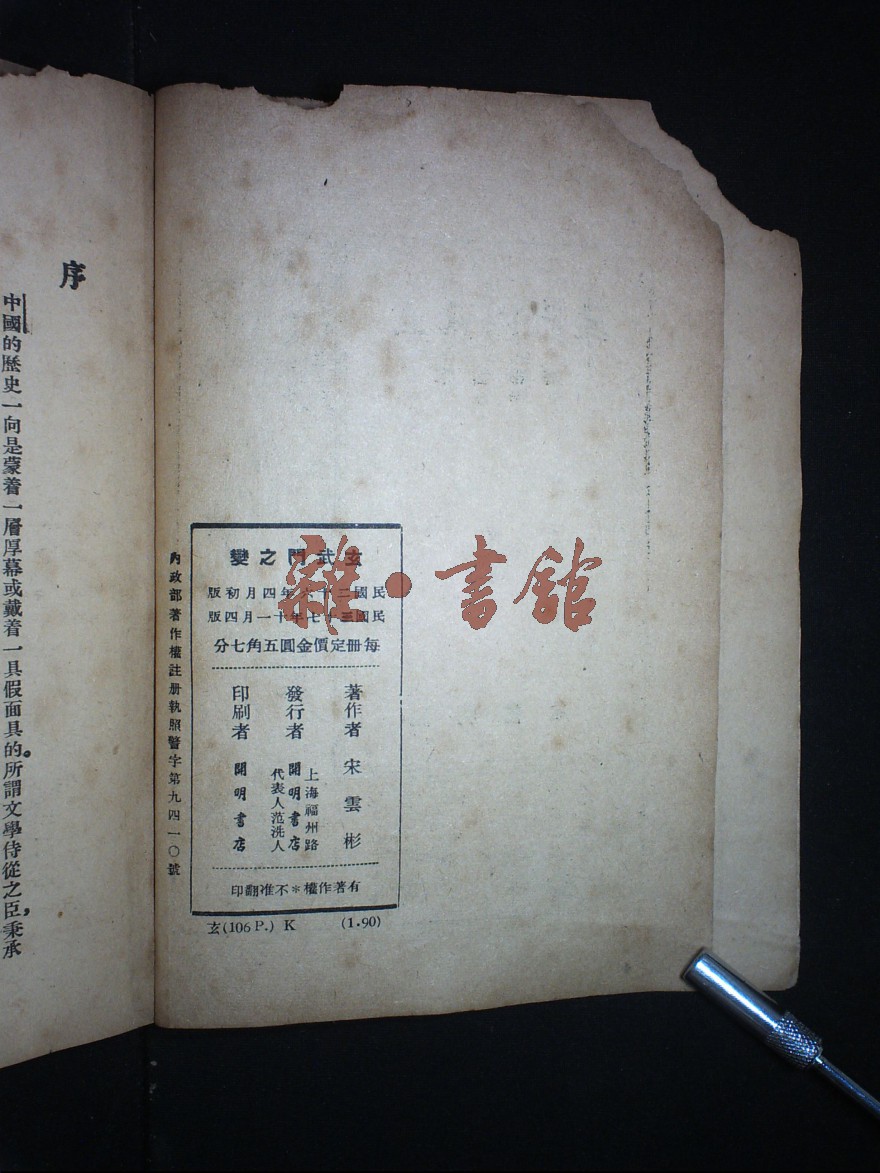 玄武門之變
民國二十六年四月初版
民國三十七年十一月四版
每冊定價金圓五角七分
著作者 宋雲彬
發行者
上海福州路
開明書店
代表人范洗人
印刷者 開明書店
有著作權*不准翻印
玄(106 P.) K (1.90)
內政部著作權註册執照警字第九四一〇號
雜·書館
序
中國的歷史一向是蒙着一層厚幕或戴着一具假面具的。所謂文學侍從之臣，秉承